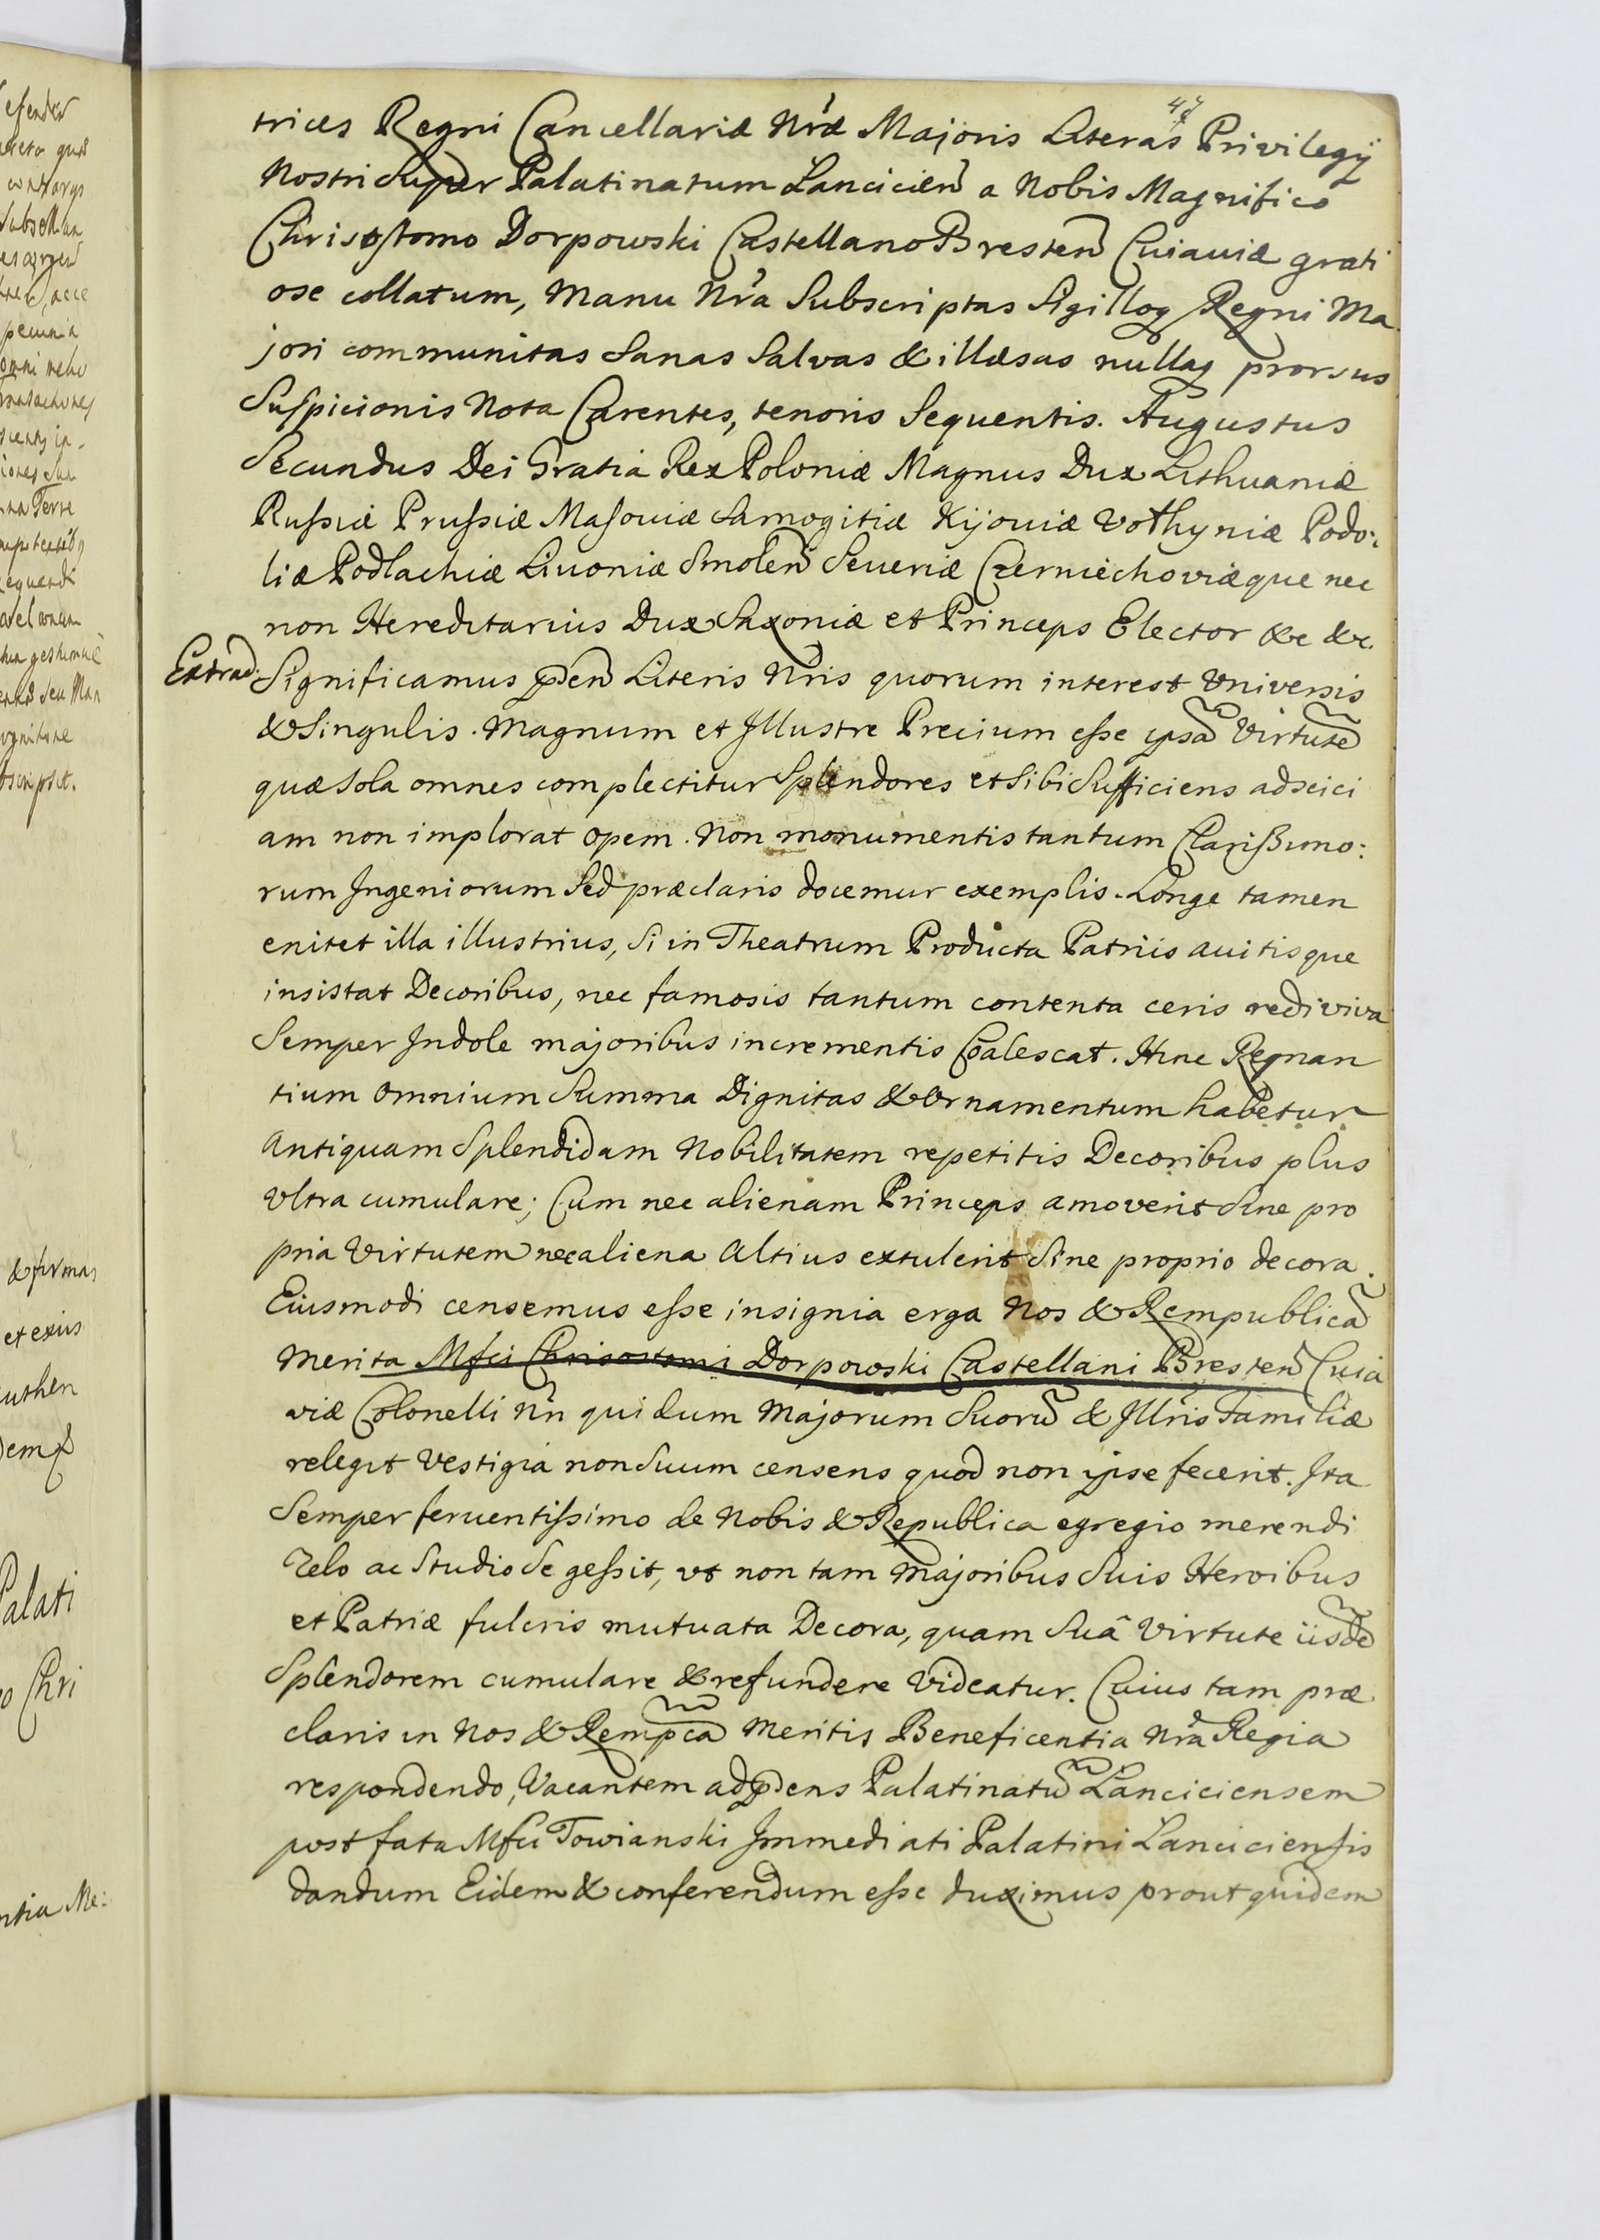 47
trices Regni Cancellariæ Nræ Majoris Literas Privilegij
Nostri Super Palatinatum Lancicien a Nobis Magnifico
Chrisostomo Dorpowski Castellano Bresten Cuiaviæ grati
ose collatum, Manu Nra Subscriptas Sigilloq Regni Ma
jori communitas Sanas Salvas & illæsas nullaq prorsus
Suspicionis Nota Carentes, tenoris Sequentis. Augustus
Secundus Dei Gratia Rex Poloniæ Magnus Dux Lithuaniæ
Russiæ Prussiæ Masoviæ Samogitiæ Kijoviæ Volhyniæ Podo:
liæ Podlachiæ Livoniæ Smolen Severiæ Czerniechoviæque nec
non Hereditarius Dux Saxoniæ et Princeps Elector &c &c.
Extrad: Significamus pden Literis Nris quorum interest Universis
& Singulis. Magnum et Illustre Precium esse ipsa Virtute
quæ sola omnes complectitur Splendores et sibi Sufficiens adscici
am non implorat opem. Non monumentis tantum Clarissimo:
rum Ingeniorum Sed præclaris docemur exemplis. Longe tamen
enitet illa illustrius, Si in Theatrum Producta Patriis avitisque
insistat Decoribus, nec famosis tantum contenta ceris rediviva
Semper Indole majoribus incrementis Coalescat. Hinc Regnan
tium omnium Summa Dignitas & Ornamentum habetur
Antiquam Splendidam Nobilitatem repetitis Decoribus plus
Ultra cumulare; Cum nec alienam Princeps amoverit Sine pro
pria Virtutem nec aliena Altius extulerit Sine proprio decora.
Eiusmodi censemus esse insignia erga Nos & Rempublica
Merita Mfci Chrisostomi Dorpowski Castellani Bresten Cuia
viæ Colonelli Nn qui dum Majorum Suoru & Illris Familiæ
relegit Vestigia non Suum censens quod non ipse fecerit. Ita
Semper ferventissimo de Nobis & Republica egregio merendi
Zelo ac Studio Se gessit, ut non tam Majoribus Suis Heroibus
et Patriæ fulcris mutuata Decora, quam Suâ Virtute iisde
Splendorem cumulare & refundere Videatur. Cuius tam præ
claris in Nos & Rempca Meritis Beneficentia Nra Regia
respondendo, Vacantem ad pdens Palatinatu Lanciciensem
post fata Mfci Towianski Immediati Palatini Lanciciensis
dandum Eidem & conferendum esse duximus prout quidem